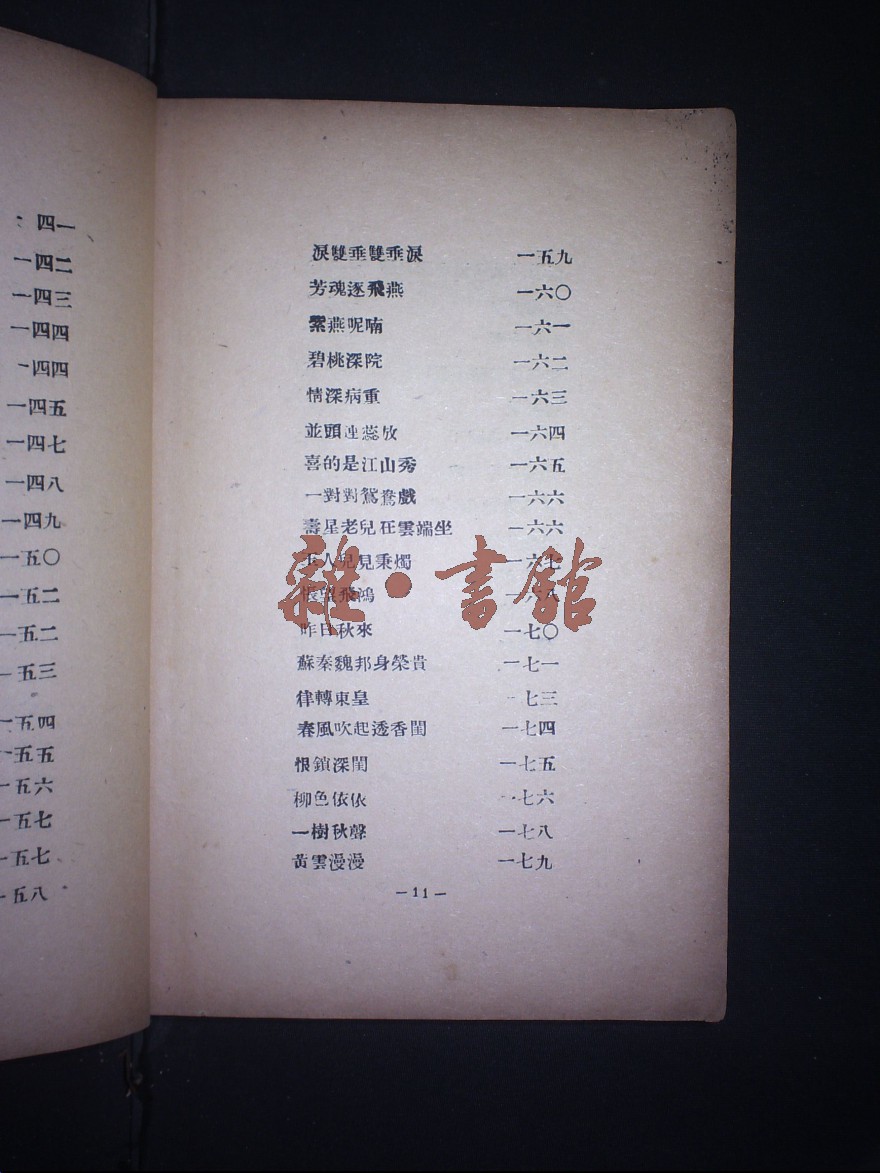 一四一
一四二
一四三
一四四
一四四
一四五
一四七
一四八
一四九
一五〇
一五二
一五二
一五三
一五四
一五五
一五六
一五七
一五七
一五八
淚雙垂雙垂淚 一五九
芳魂逐飛燕 一六〇
紫燕呢喃 一六一
碧桃深院 一六二
情深病重 一六三
並頭連蕊放 一六四
喜的是江山秀 一六五
一對對鴛鴦戲 一六六
壽星老兒在雲端坐 一六六
玉人兒見秉燭 一六七
悵望飛鴻 一六八
昨日秋來 一七〇
蘇秦魏邦身榮貴 一七一
律轉東皇 一七三
春風吹起透香閨 一七四
恨鎖深閨 一七五
柳色依依 一七六
一樹秋聲 一七八
黃雲漫漫 一七九
—11—
雜·書館